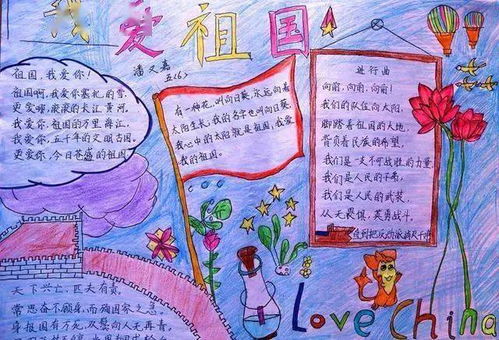 我爱祖国
潘又嘉
五(6)
祖国，我爱你！
祖国啊，我爱你
更爱你，滚滚的大江黄河。
我爱你，祖国的万里海江
我爱你，五千年的文明古国。
更爱你，今日苍盛的祖国
有一种花，叫向日葵，永远向着
太阳生长，我的名字也叫向日葵，
我心中的太阳就是祖国，我爱
我的祖国。
进行曲
向前，向前，向前！
我们的队伍向太阳，
脚踏着祖国的大地，
背负着民族的希望，
我们是一支不可战胜的力量
我们是人民的子弟，
我们是人民的武装，
从无畏惧，英勇战斗，
直到把反动派消灭干净
天下兴亡，匹夫有责。
常思奋不顾身，而殉国家之急。
身报国有万死，双鬓向人无再青。
Love China